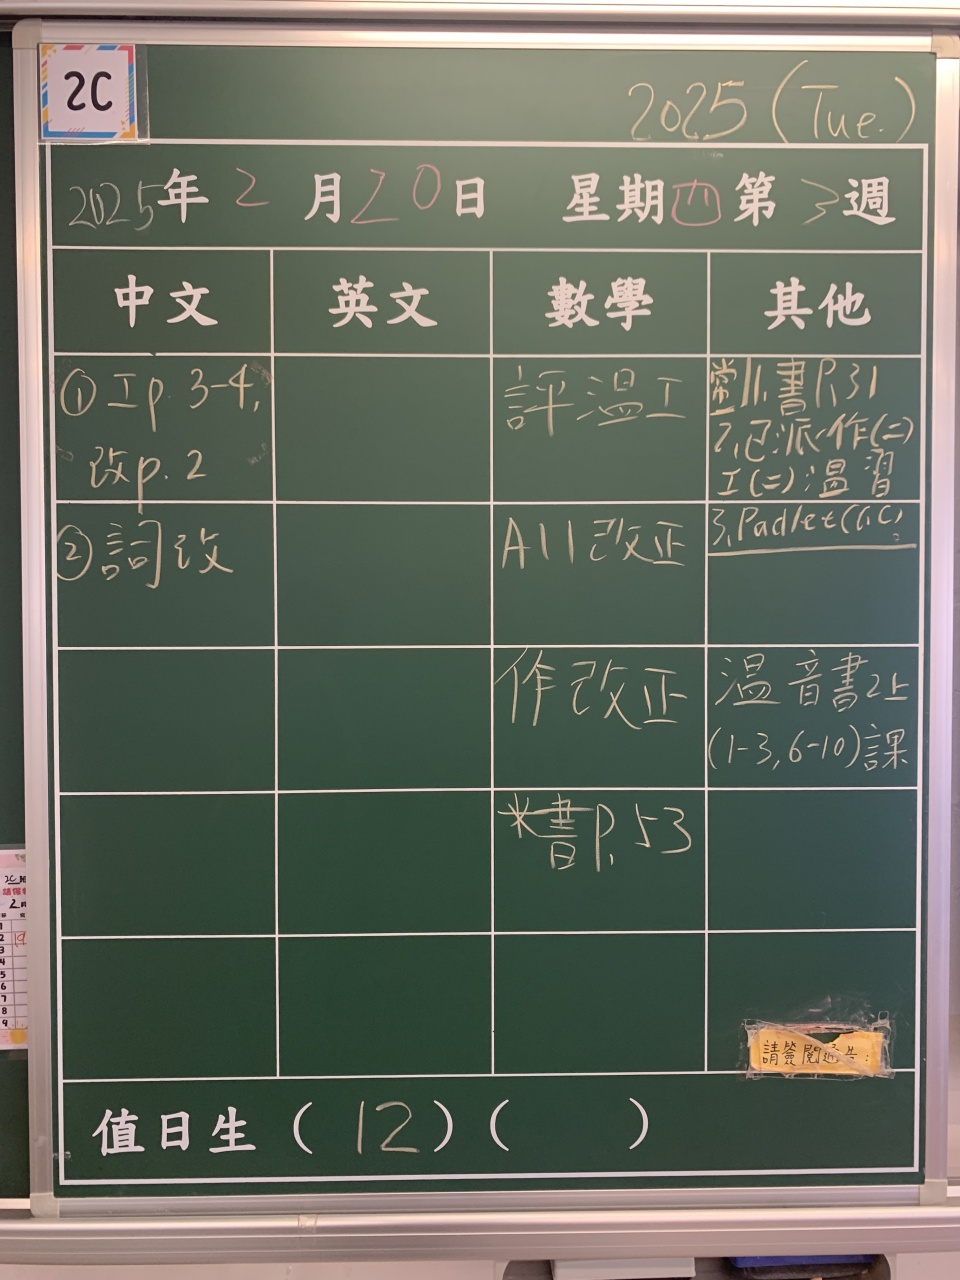 2C
2025 (Tue.)
2025年 2 月 20 日 星期四 第 3 週
中文 英文 數學 其他
① 工p. 3-4,
改p. 2
② 詞改
評溫工
All 改正
作改正
*書p. 53
常 1. 書P.31
2. 已派作(二)
工(二)溫習
3. Padlet(G.C)
溫音書2上
(1-3, 6-10)課
請簽閱通告:
值日生 ( 12 ) ( )
2C
2
1
2
3
4
5
6
7
8
9